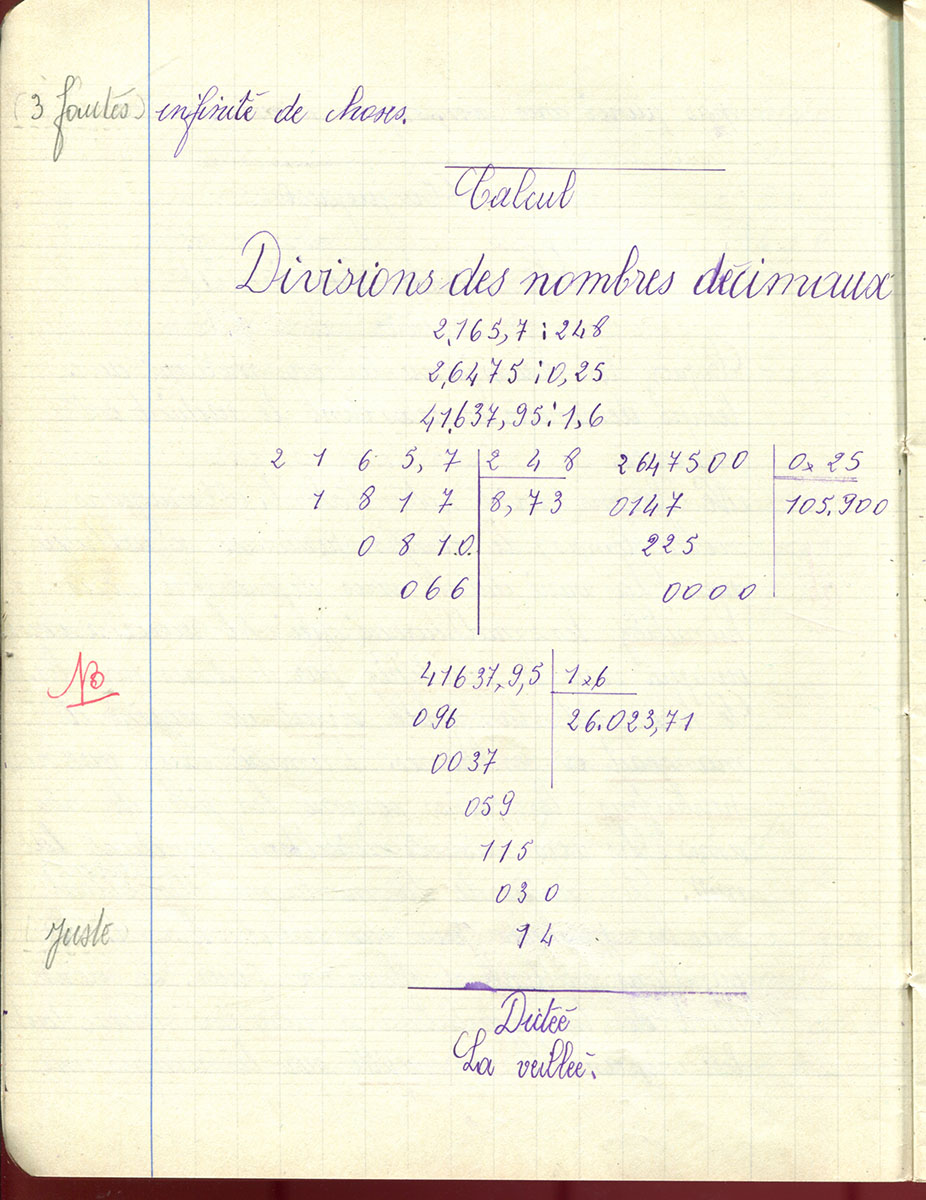 (3 fautes) enfinité de choses.
Calcul
Divisions des nombres décimaux
2.165,7 : 248
2,6475 : 0,25
41.637,95 : 1,6
2 1 6 5,7 2 4 8
1 8 1 7 8,73
0 8 1.0.
066
2647500 0,25
0147 105.900
225
0000
41637,9,5 1,6
096 26.023,71
0037
059
115
030
14
B
Juste
Dictée
La veillée.